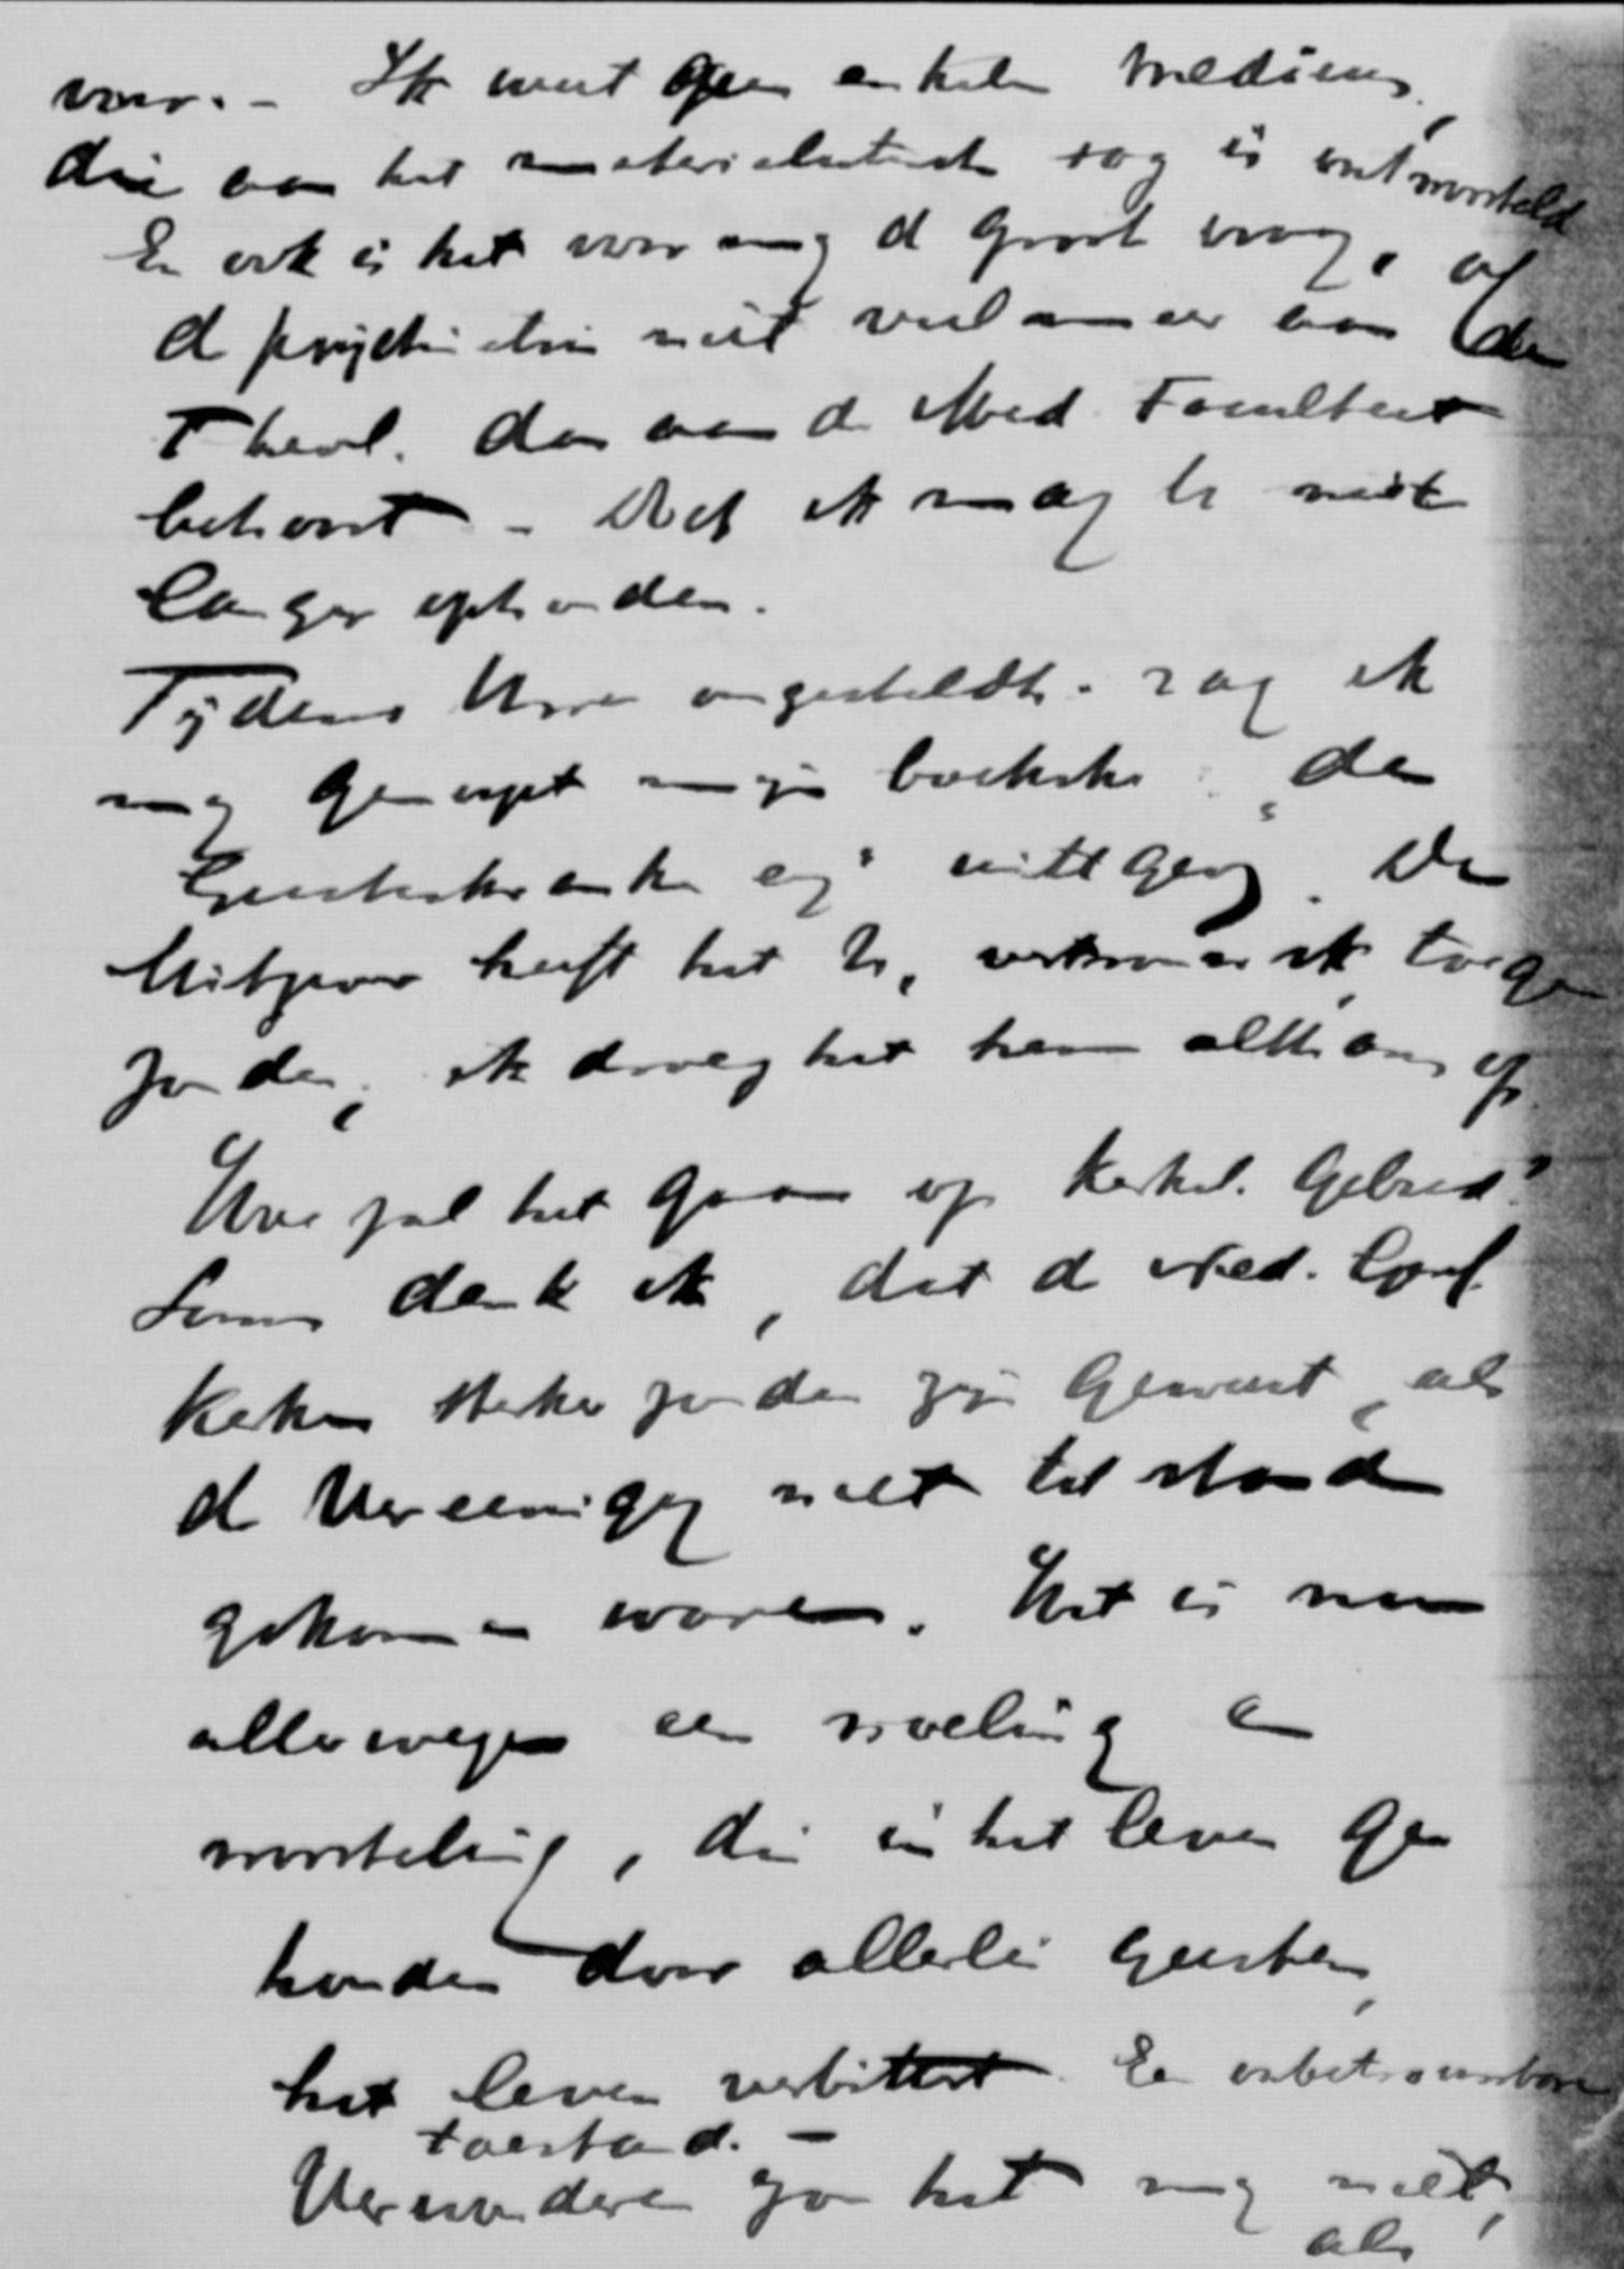 voor. - Ik weet geen enkelen medicus,
die aan het materialistisch zog is ontworsteld
En ook is het voor mij d groote vraag, of
d psychiatrie niet veel meer aan de
Theol. dan aan d Med. Faculteit
behoort - Doch ik mag U niet
langer ophouden.
Tijdens Uwe ongesteldh. zag ik
mij genoopt mijn boekske: "de
Geesteskranken" uittegeven. De
Uitgever heeft het U, vertrouw ik, toege
zonden; ik droeg het hem althans op.
Hoe zal het gaan op Kerkel. Gebied?
Soms denk ik, dat d Ned. Geref.
Kerken sterker zouden zijn geweest, als
d Vereeniging niet tot stand
gekomen ware. Het is nu
allerwegen een woeling en
worsteling, die in het leven ge
houden door allerlei geesten,
het leven verbittert. Een onbetrouwbare
toestand. -
Verwonderen zou het mij niet,
als